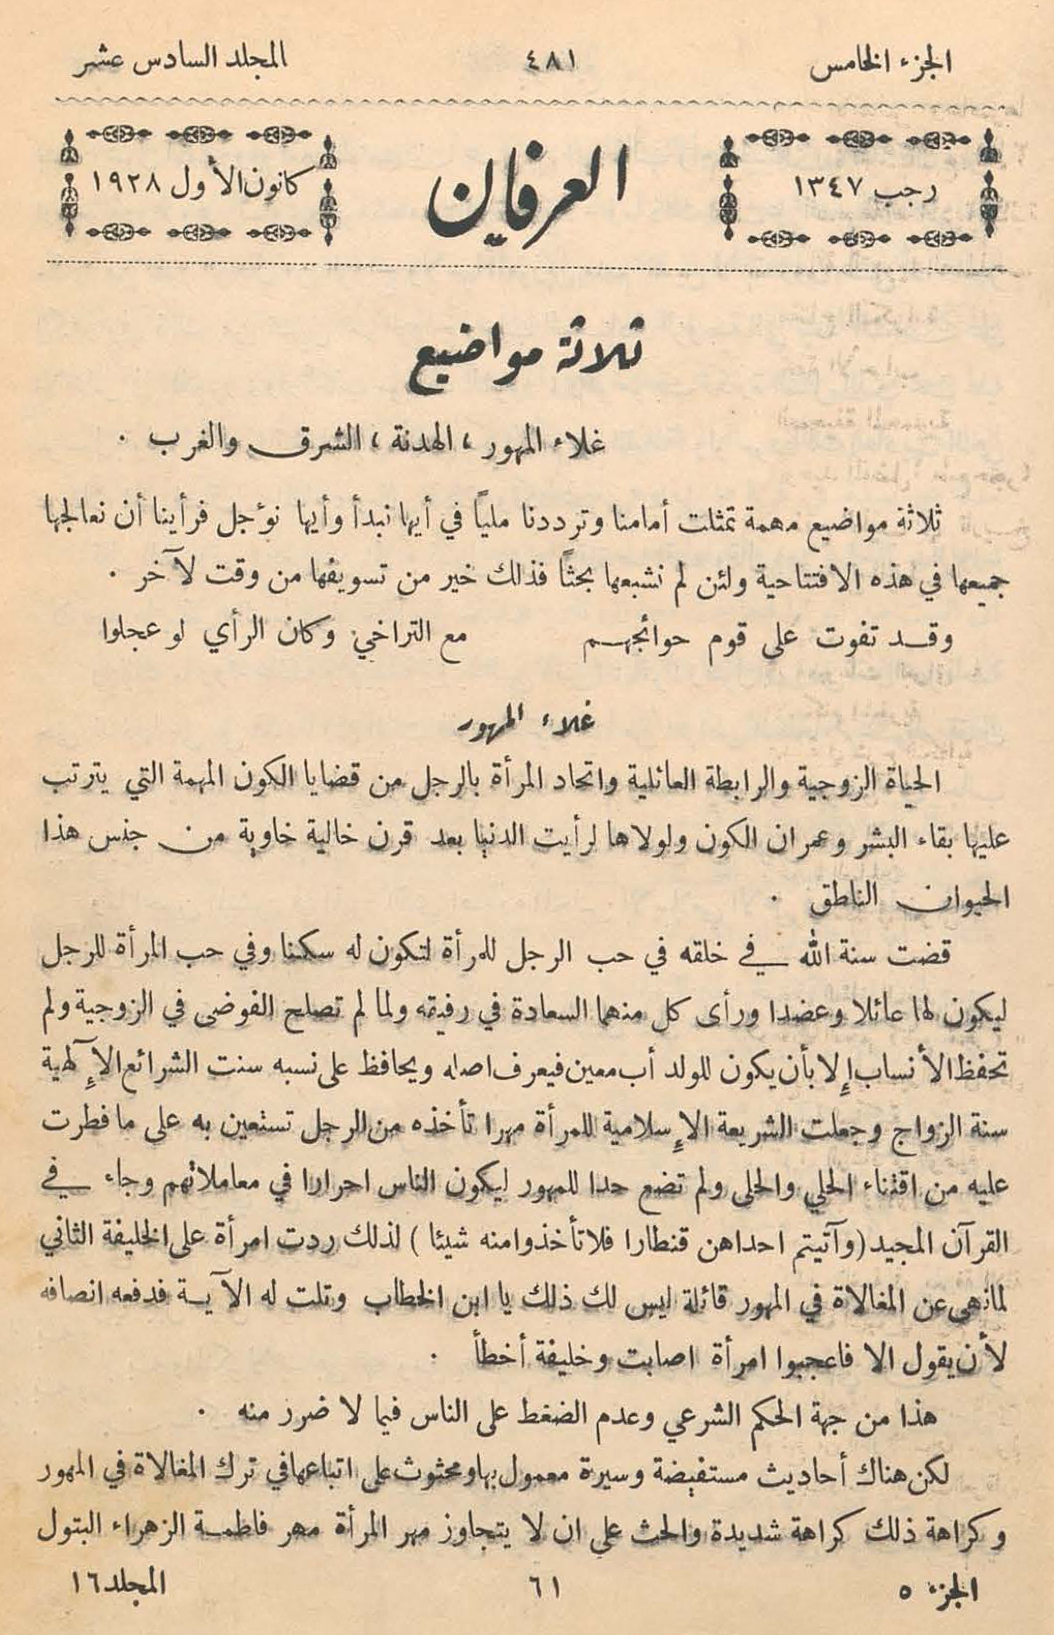 الجزء الخامس ٤٨١ المجلد السادس عشر
رجب ١٣٤٧ العرفان كانون الأول ١٩٢٨
ثلاثة مواضيع
غلاء المهور ، الهدنة ، الشرق والغرب .
ثلاثة مواضيع مهمة تمثلت أمامنا وترددنا ملياً في أيها نبدأ وأيها نؤجل فرأينا أن نعالجها
جميعها في هذه الافتتاحية ولئن لم نشبعها بحثاً فذلك خير من تسويفها من وقت لآخر .
وقد تفوت على قوم حوائجهم مع التراخي وكان الرأي لو عجلوا
غلاء المهور
الحياة الزوجية والرابطة العائلية واتحاد المرأة بالرجل من قضايا الكون المهمة التي يترتب
عليها بقاء البشر وعمران الكون ولولاها لرأيت الدنيا بعد قرن خالية خاوية من جنس هذا
الحيوان الناطق .
قضت سنة الله في خلقه في حب الرجل للمرأة لتكون له سكنا وفي حب المرأة للرجل
ليكون لها عائلا وعضدا ورأى كل منهما السعادة في رفيقه ولما لم تصلح الفوضى في الزوجية ولم
تحفظ الأنساب إلا بأن يكون للولد أب معين فيعرف اصله ويحافظ على نسبه سنت الشرائع الآلهية
سنة الزواج وجعلت الشريعة الإسلامية للمرأة مهرا تأخذه من الرجل تستعين به على ما فطرت
عليه من اقتناء الحلي والحلى ولم تضع حدا للمهور ليكون الناس احرارا في معاملاتهم وجاء في
القرآن المجيد (وآتيتم احداهن قنطارا فلا تأخذوا منه شيئا ) لذلك ردت امرأة على الخليفة الثاني
لما نهى عن المغالاة في المهور قائلة ليس لك ذلك يا ابن الخطاب وتلت له الآية فدفعه انصافه
لأن يقول الا فاعجبوا امرأة اصابت وخليفة أخطأ .
هذا من جهة الحكم الشرعي وعدم الضغط على الناس فيما لا ضرر منه .
لكن هناك أحاديث مستفيضة وسيرة معمول بها ومحثوث على اتباعها في ترك المغالاة في المهور
وكراهة ذلك كراهة شديدة والحث على ان لا يتجاوز مهر المرأة مهر فاطمة الزهراء البتول
الجزء ٥ ٦١ المجلد ١٦